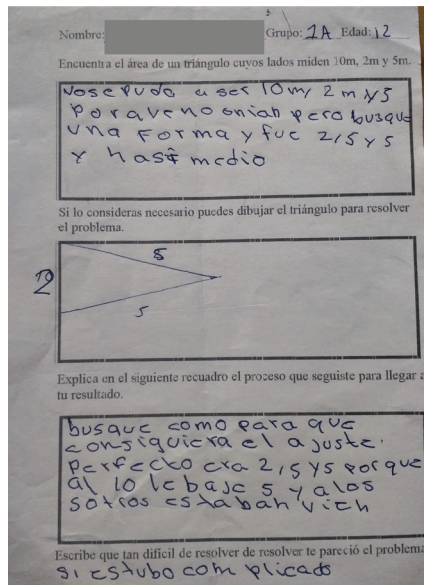 Nombre: Grupo: 1A Edad: 12
Encuentra el área de un triángulo cuyos lados miden 10m, 2m y 5m.
nosepudo aser 10m, 2m y 5
poraveno onian pero busque
una forma y fue 2,5 y 5
y hasí medio
Si lo consideras necesario puedes dibujar el triángulo para resolver
el problema.
5
2
5
Explica en el siguiente recuadro el proceso que seguiste para llegar a
tu resultado.
busque como para que
consiguiera el ajuste.
perfecto era 2,5 y5 porque
al 10 lebaje 5 y alos
sotros estaban vien
Escribe que tan difícil de resolver de resolver te pareció el problema
si estubo complicado